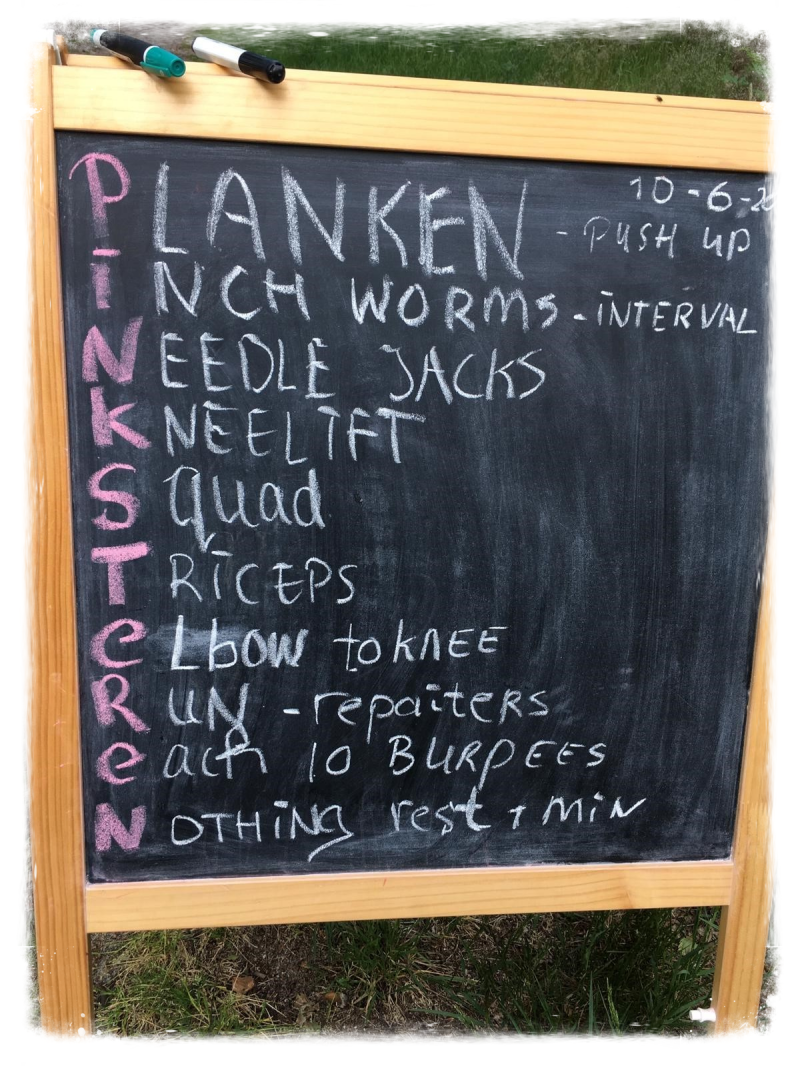 10-6-20
PLANKEN - PUSH UP
iNCH WORMS - iNTERVAL
NEEDLE JACKS
KNEELiFT
Squad
TRiCEPS
eLbow to KNEE
RUN - repaiters
each 10 BURPEES
NOTHiNG rest 1 MiN